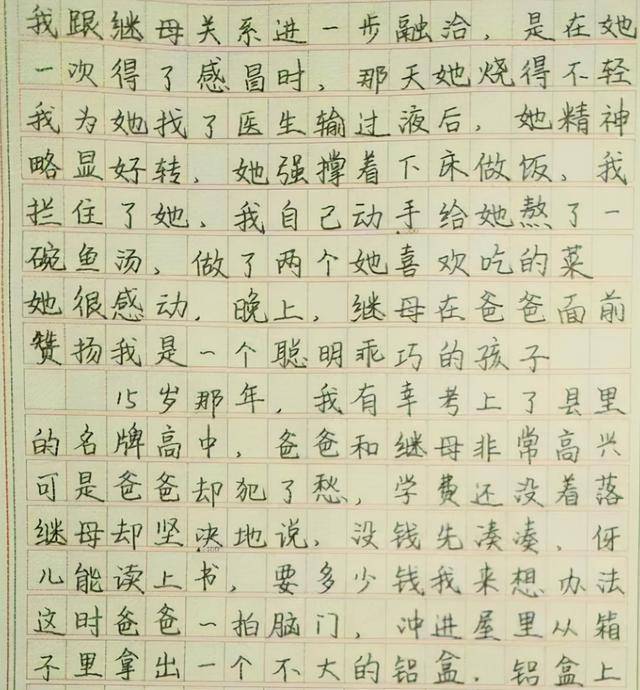 我跟继母关系进一步融洽，是在她
一次得了感冒时，那天她烧得不轻
我为她找了医生输过液后，她精神
略显好转，她强撑着下床做饭，我
拦住了她，我自己动手给她熬了一
碗鱼汤，做了两个她喜欢吃的菜
她很感动，晚上，继母在爸爸面前
赞扬我是一个聪明乖巧的孩子
15岁那年，我有幸考上了县里
的名牌高中，爸爸和继母非常高兴
可是爸爸却犯了愁，学费还没着落
继母却坚决地说，没钱先凑凑，伢
儿能读上书，要多少钱我来想办法
这时爸爸一拍脑门，冲进屋里从箱
子里拿出一个不大的铝盒．铝盒上